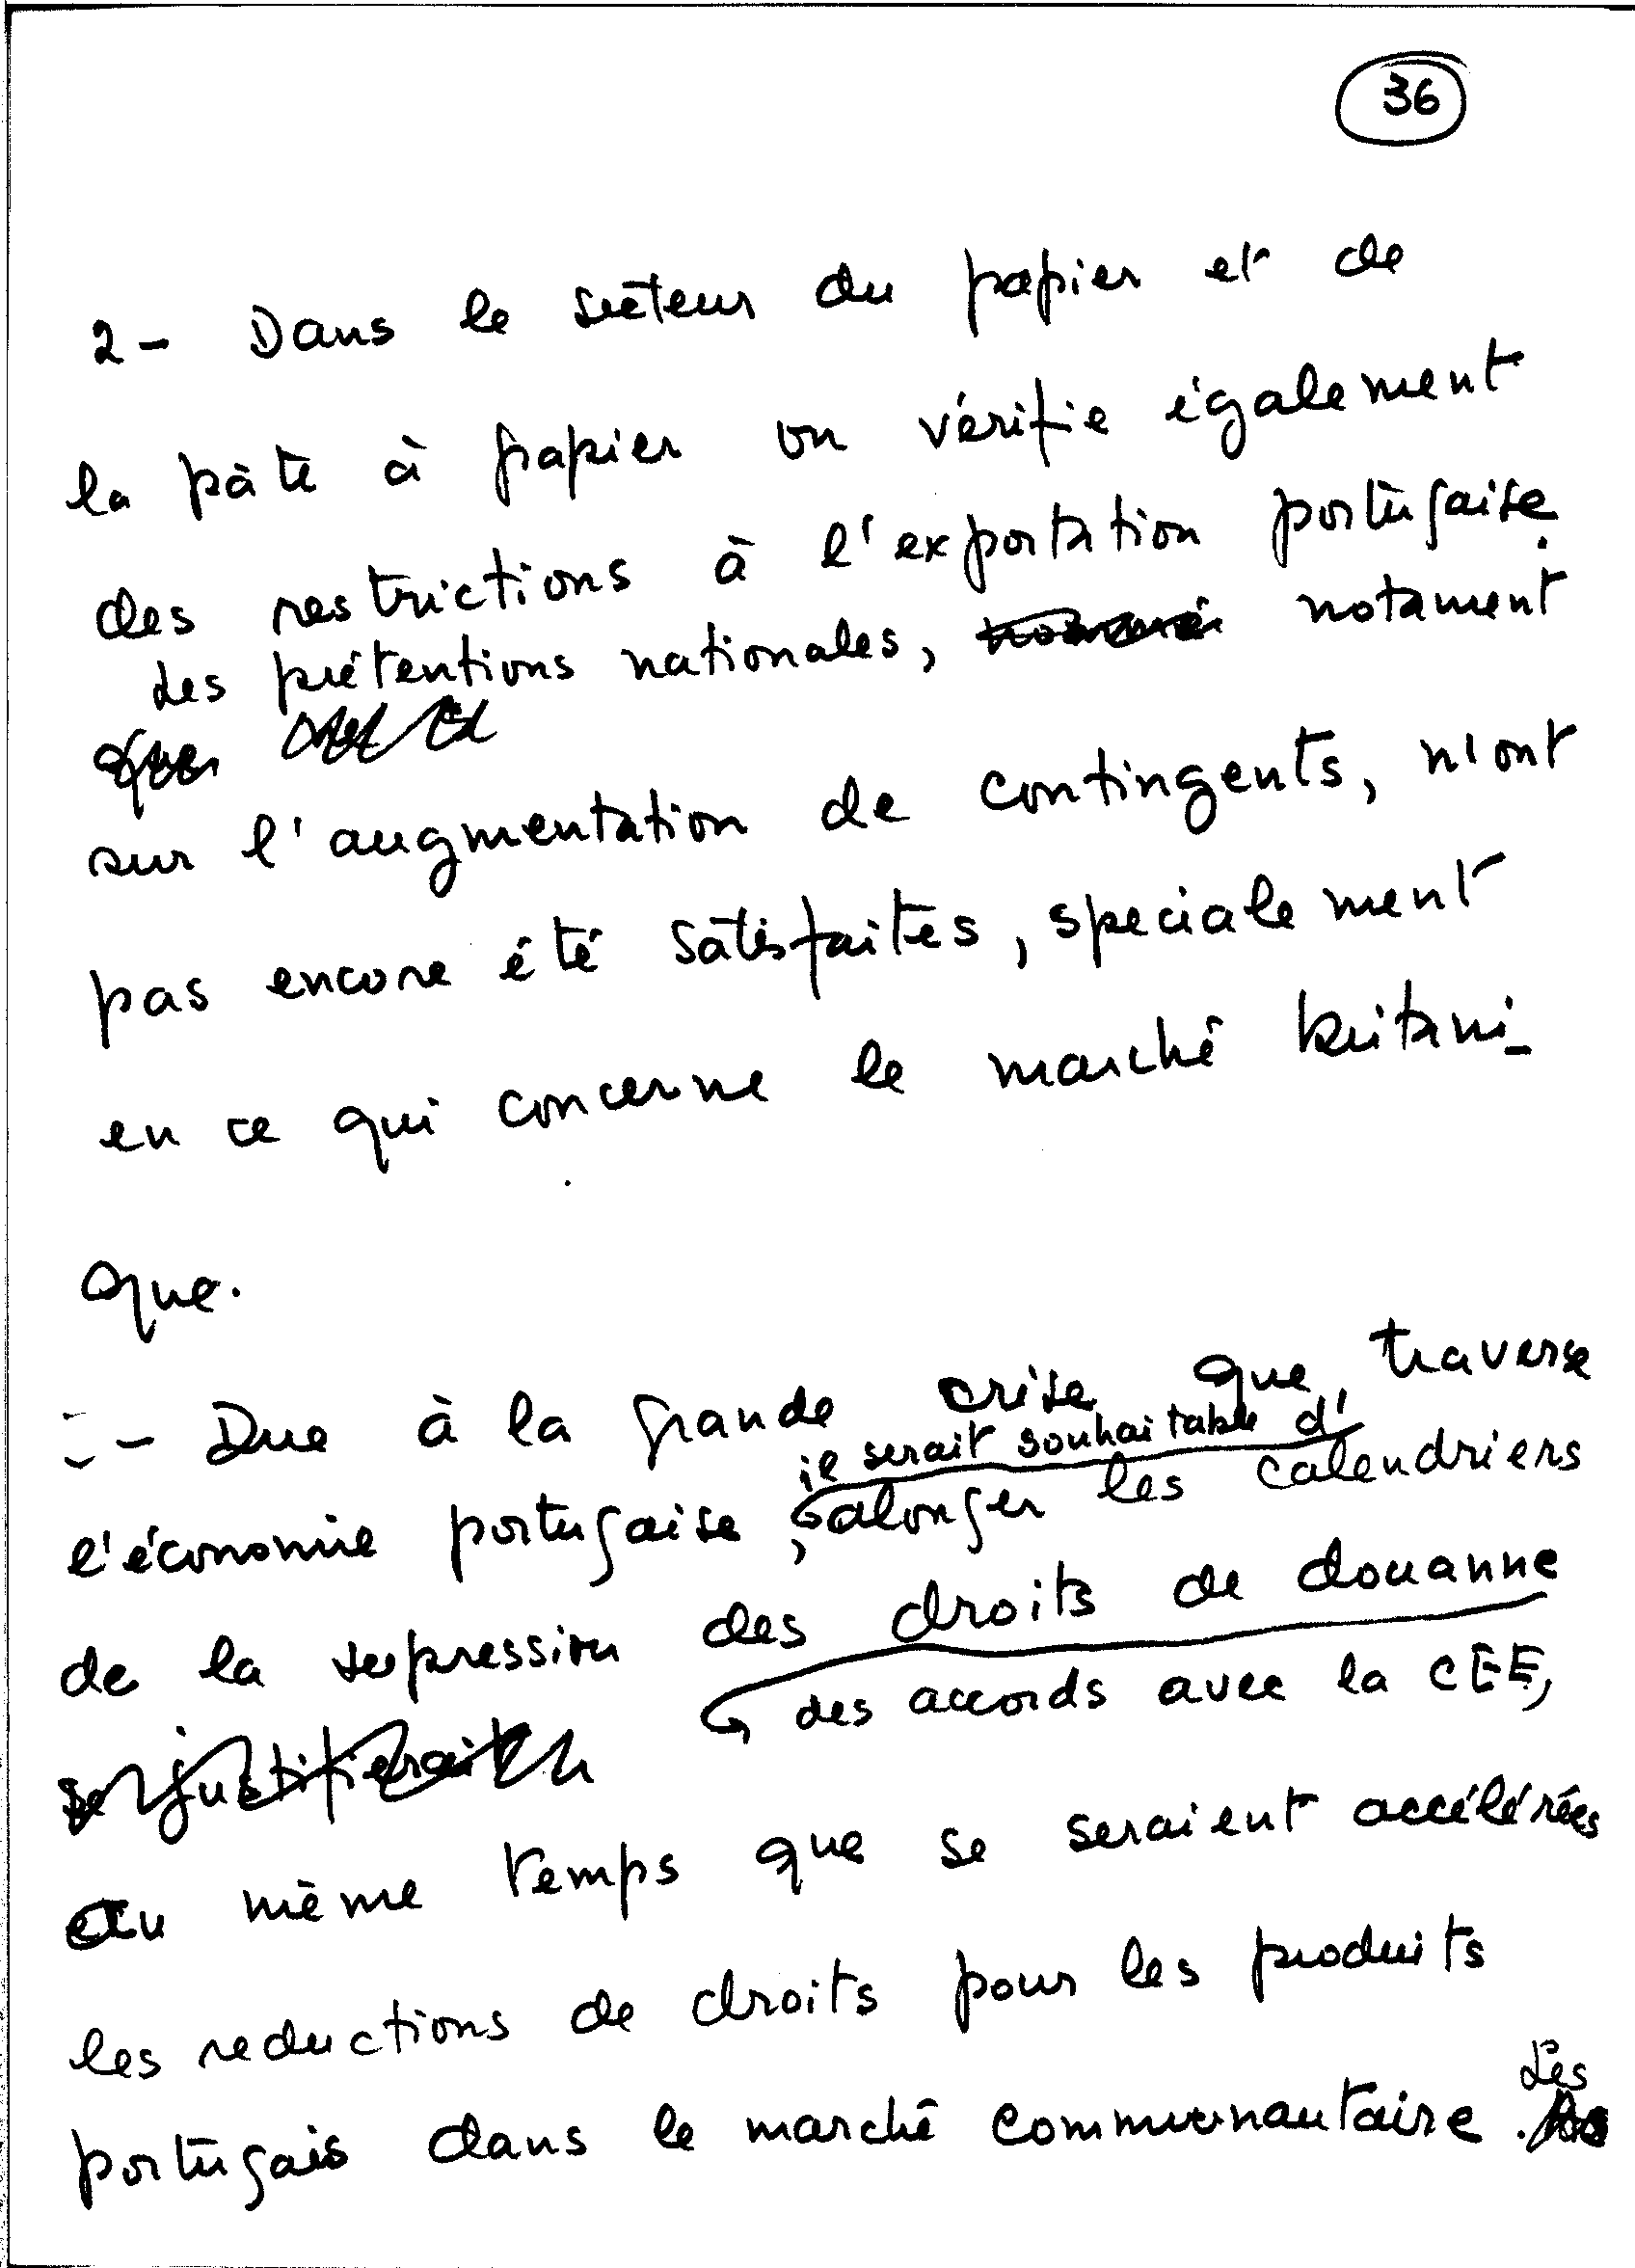 36
2 - Dans le secteur du papier et de
la pâte à papier on vérifie également
des restrictions à l'exportation portugaise.
Les prétentions nationales, notament
sur l'augmentation de contingents, n'ont
pas encore été satisfaites, specialement
en ce qui concerne le marché britani-
que.
- Due à la grande crise que traverse
il serait souhaitable d'
l'économie portugaise, alonger les calendriers
de la supression des droits de douanne
des accords avec la CEE,
se justifierait
au même temps que se seraient accélérées
les reductions de droits pour les produits
portugais dans le marché communautaire. Les